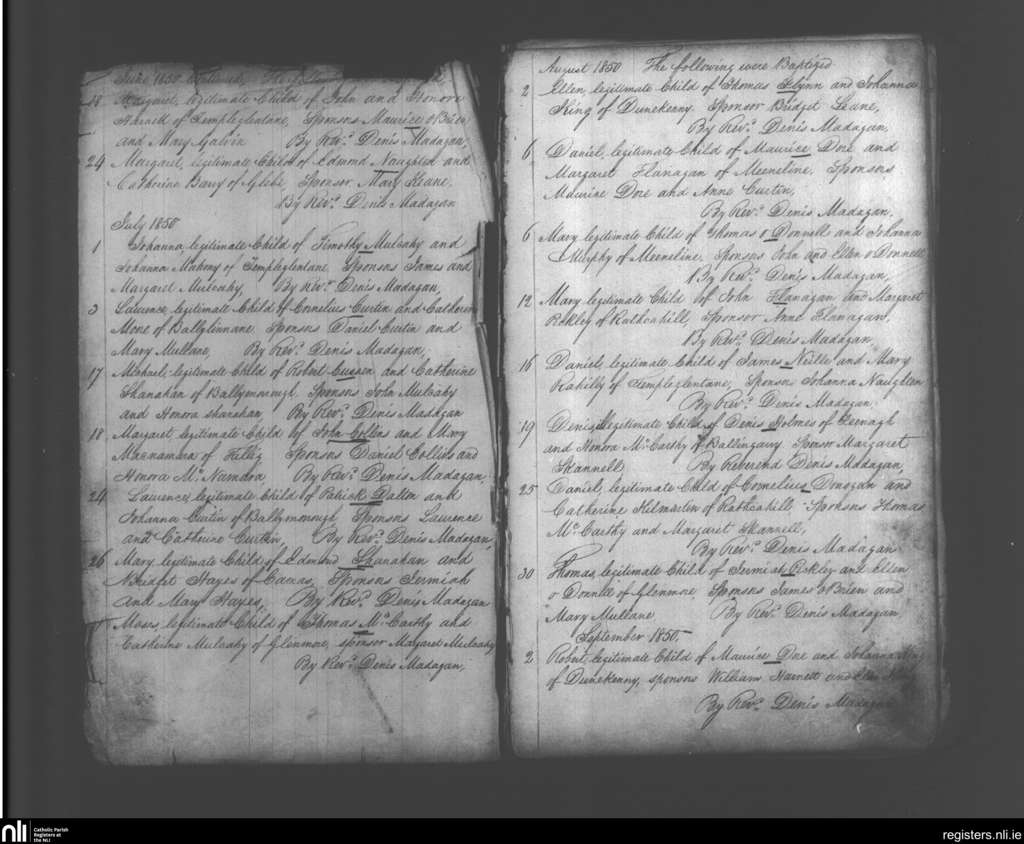 June 1850 continued, The
18 Margaret, legitimate Child of John and Honora
Herreld of Templeglentane, Sponsors Maurice o Brien
and Mary Galvin By Revd. Denis Madagan,
24 Margaret, legitimate Child of Edmond Naughted and
Catherine Barry of Glebe, Sponsor Mary Keane,
By Revd. Denis Madagan
July 1850
1 Johanna, legitimate Child of Timothy Mulcahy and
Johanna Mahony of Templeglentane, Sponsors James and
Margaret Mulcahy, By Revd. Denis Madagan,
3 Laurence, legitimate Child of Cornelius Curtin and Catherine
Mone of Ballylinnane, Sponsors Daniel Curtin and
Mary Mullane, By Revd. Denis Madagan,
17 Michael, legitimate Child of Robert Cussen and Catherine
Shanahan of Ballymorough, Sponsors John Mulcahy
and Honora shanahan By Revd. Denis Madagan
18 Margaret legitimate Child of John Collins and Mary
Macnamara of Sponsors Daniel Collins and
Honora Mc. Namara By Revd. Denis Madagan,
24 Laurence, legitimate Child of Patrick Dalton and
Johanna Curtin of Ballymorough, Sponsors Laurence
and Catherine Curtin, By Revd. Denis Madagan,
26 Mary, legitimate Child of Edmond Shanahan and
Bridget Hayes of Camas, Sponsors Jermiah
and Mary Hayes, By Revd. Denis Madagan
Moses legitimate Child of Thomas Mc. Carthy and
Catherine Mulcahy of Glenmore, sponsor Margaret Mulcahy
By Revd. Denis Madagan,
August 1850 The following were Baptized
2 Ellen, legitimate Child of Thomas Flynn and Johanna
King of Dunekenny. Sponsor Bridget Leane,
By Revd. Denis Madagan,
6 Daniel, legitimate Child of Maurice Dore and
Margaret Flanagan of Meeneline, Sponsors
Maurine Dore and Anne Curtin,
By Revd. Denis Madagan,
6 Mary legitimate Child of Thomas o Donnell and Johanna
Murphy of Meeneline, Sponsors John and Ellen o Donnell
By Revd. Denis Madagan,
12 Mary legitimate Child of John Flanagan and Margaret
Rekley of Rathcahill, Sponsor Anne Flanagan,
By Revd. Denis Madagan,
16 Daniel, legitimate Child of James Neille and Mary
Rahilly of Templeglentane, Sponsor Johanna Naughten
By Revd. Denis Madagan,
19 Denis, illegitimate Child of Denis Holmes of Feenagh
and Honora Mc. Carthy of Ballingarry Sponsor Margaret
Skannell By Reverend Denis Madagan,
25 Daniel, legitimate Child of Cornelius Donogan and
Catherine Kilmartin of Rathcahill Sponsors Thomas
Mc. Carthy and Margaret Skannell,
By Revd. Denis Madagan
30 Thomas, legitimate Child of Jermiah Rekley and Ellen
o Donnell of Glenmore, Sponsors James O Brien and
Mary Mullane By Revd. Denis Madagan
September 1850,
2 Robert, legitimate Child of Maurice Dore and Johanna
of Dunekenny, sponsors William Harnett and
By Revd. Denis Madagan
nli
Catholic Parish
Registers at
the NLI
registers.nli.ie